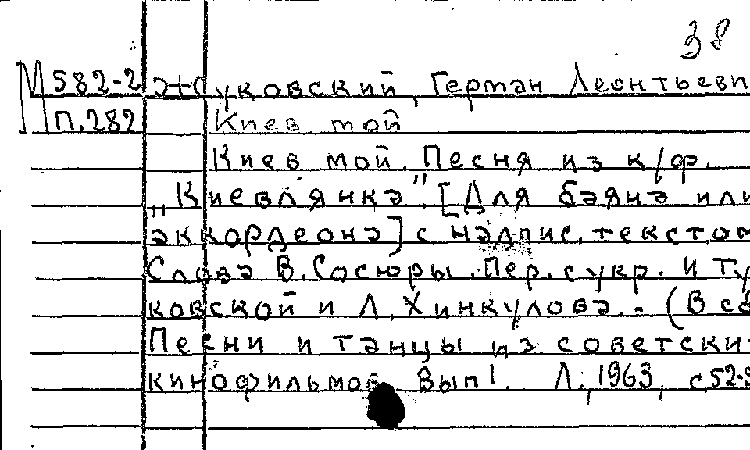 38
М 582-2 Жуковский, Герман Леонтьеви
П.282 Киев мой
Киев мой. Песня из к/ф.
„Киевлянка". [Для баяна или
аккордеона] с надпис. текстом
Слова В. Сосюры. Пер. с укр. И Ту
ковской и Л. Хинкулова. - (В сб
Песни и танцы из советски-
кинофильмов Вып 1. Л., 1963, с 52-